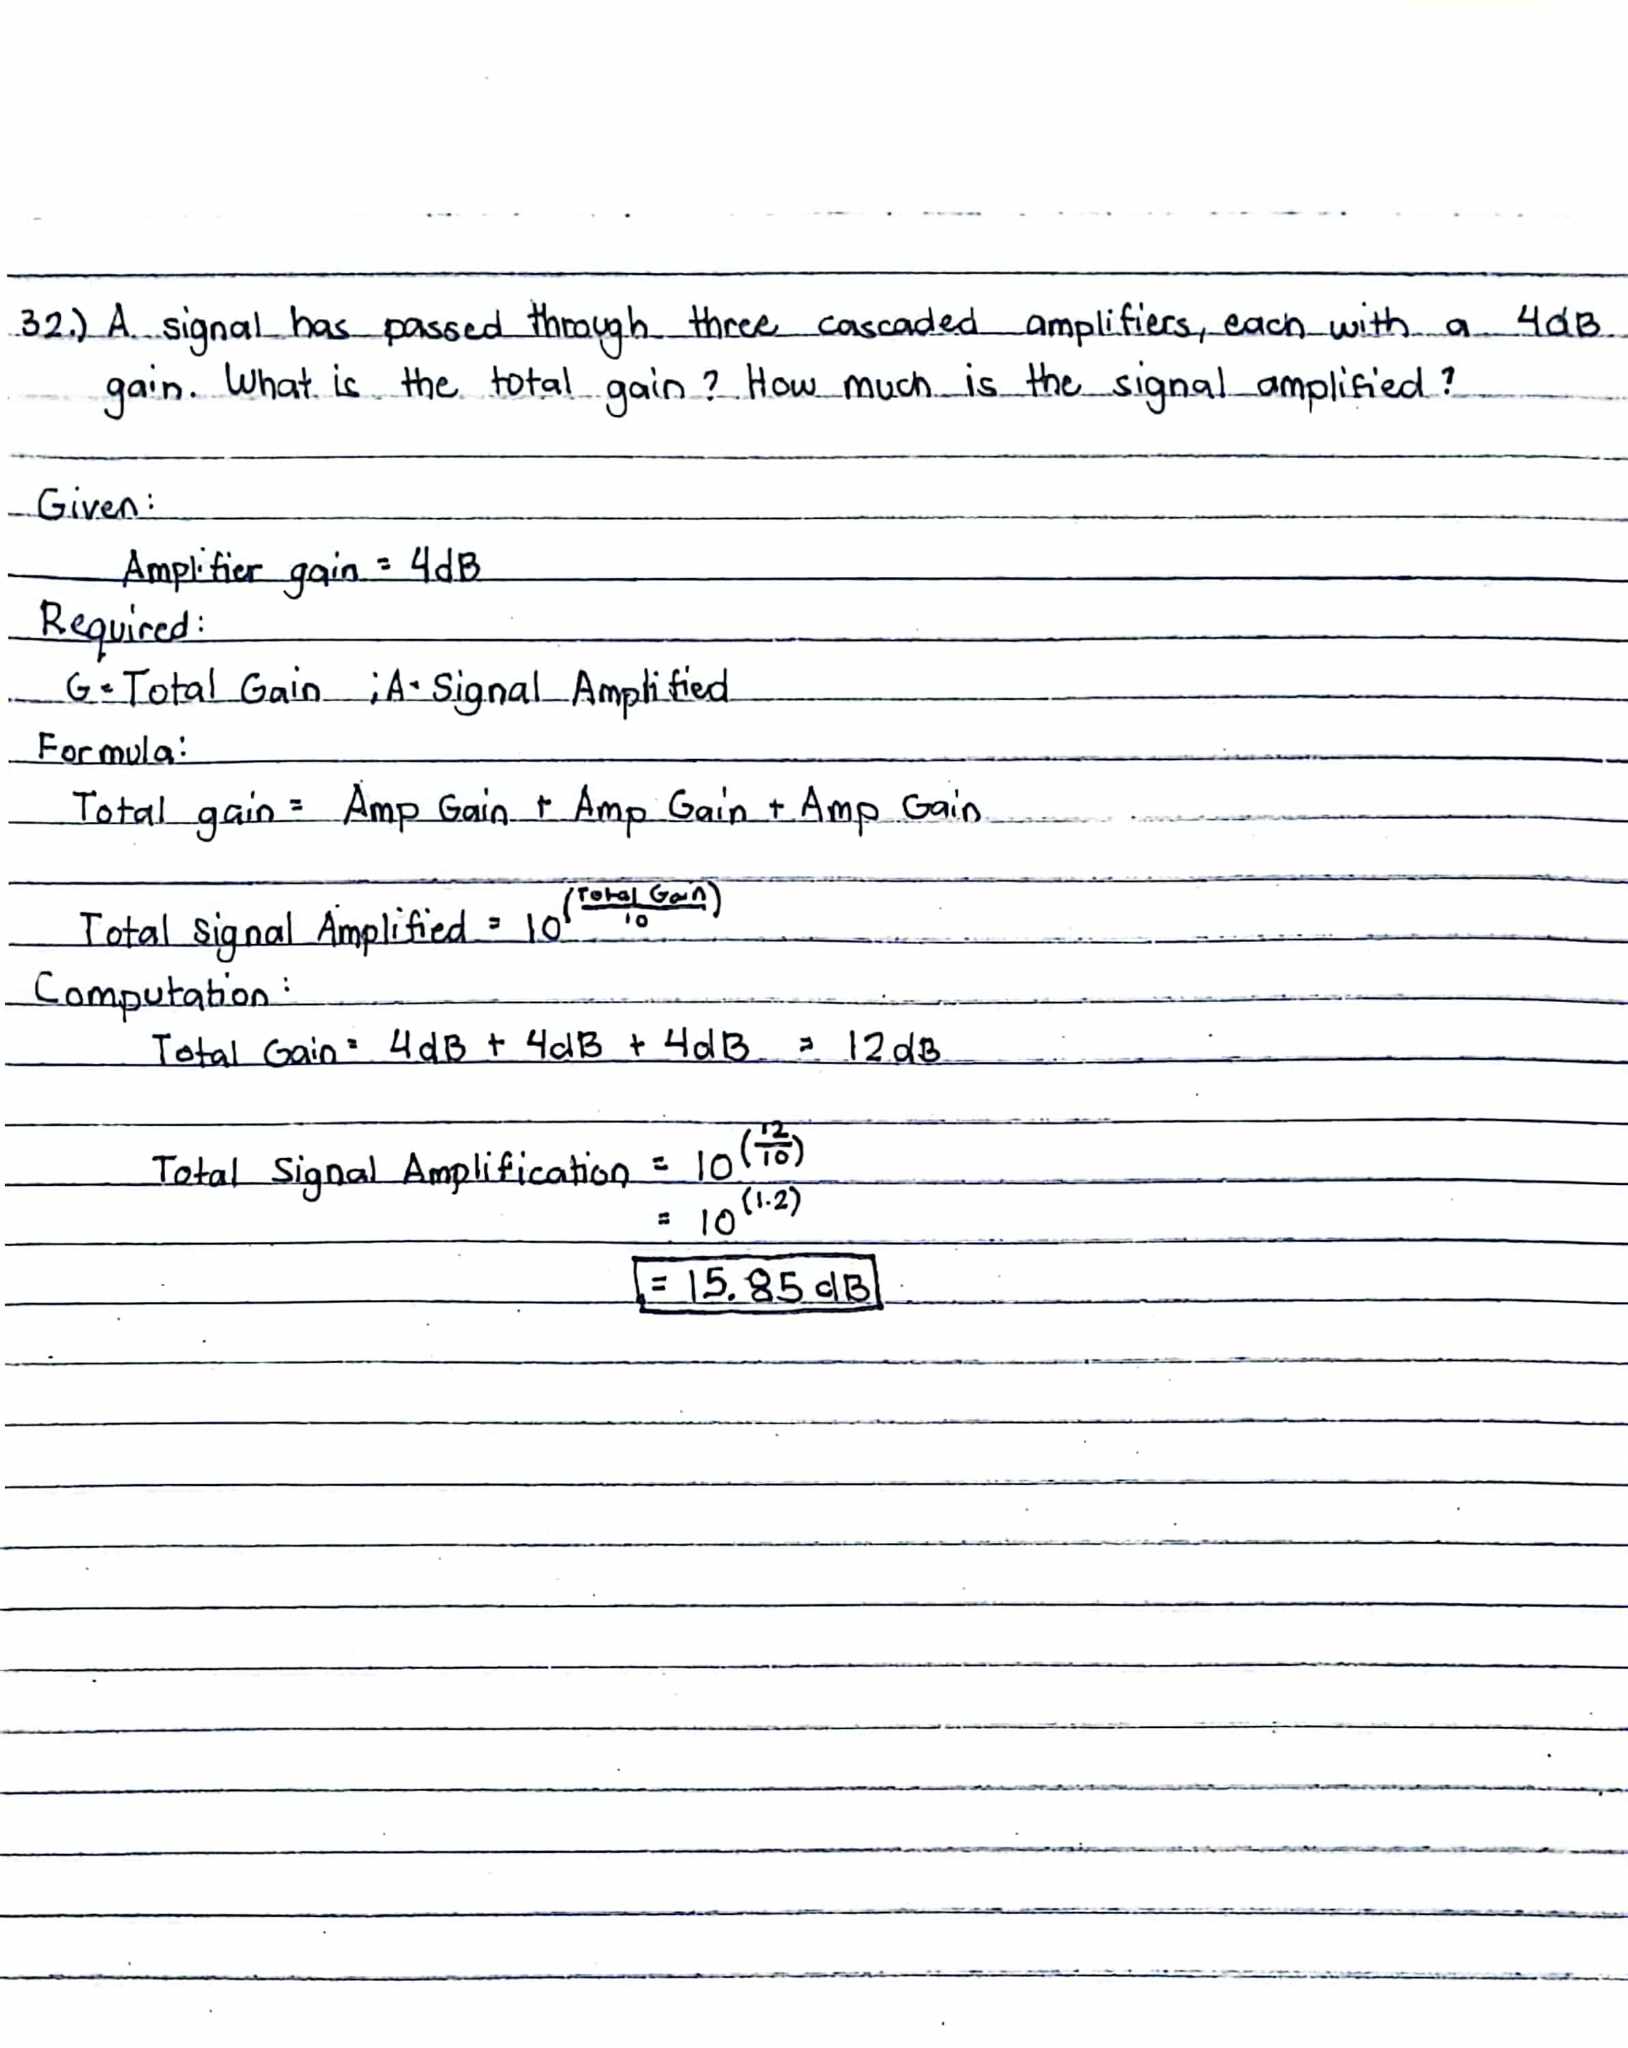 32.) A signal has passed through three cascaded amplifiers, each with a 4dB
gain. What is the total gain? How much is the signal amplified?
Given:
Amplifier gain = 4dB
Required:
G = Total Gain ; A = Signal Amplified
Formula:
Total gain = Amp Gain + Amp Gain + Amp Gain
Total Signal Amplified = 10^(Total Gain/10)
Computation:
Total Gain = 4dB + 4dB + 4dB = 12dB
Total Signal Amplification = 10^(12/10)
= 10^(1.2)
= 15.85 dB